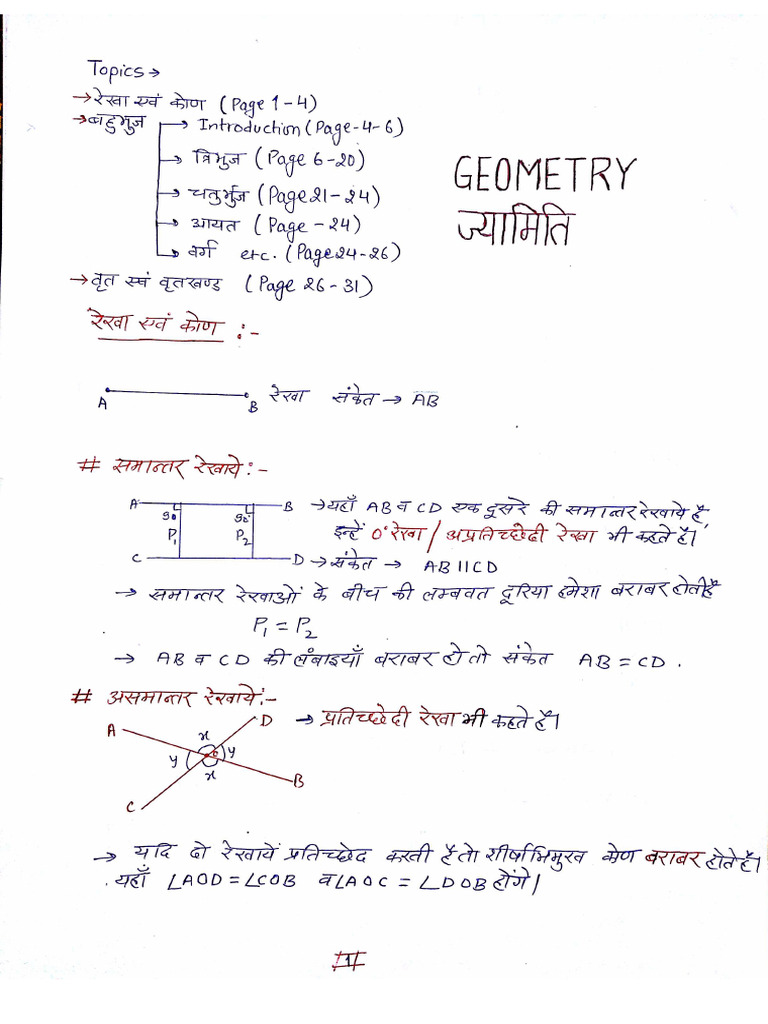 Topics →
→ रेखा एवं कोण (Page 1-4)
→ बहुभुज
→ Introduction (Page-4-6)
→ त्रिभुज (Page 6-20)
→ चतुर्भुज (Page 21-24)
→ आयत (Page -24)
→ वर्ग etc. (Page 24-26)
→ वृत एवं वृतखण्ड (Page 26-31)
GEOMETRY
ज्यामिति
रेखा एवं कोण :-
A B रेखा संकेत → AB
# समान्तर रेखाये :-
A B → यहाँ AB व CD एक दूसरे की समान्तर रेखाये है,
90 90 P1 P2 इन्हें 0° रेखा / अप्रतिच्छेदी रेखा भी कहते है।
C D → संकेत → AB || CD
→ समान्तर रेखाओं के बीच की लम्बवत दूरिया हमेशा बराबर होती है
P1 = P2
→ AB व CD की लंबाइयाँ बराबर हो तो संकेत AB = CD .
# असमान्तर रेखाये :-
A D → प्रतिच्छेदी रेखा भी कहते है।
x
y o y
x
B
C
→ यदि दो रेखायें प्रतिच्छेद करती है तो शीर्षाभिमुख कोण बराबर होते है।
यहाँ ∠AOD = ∠COB व ∠AOC = ∠DOB होंगे।
1